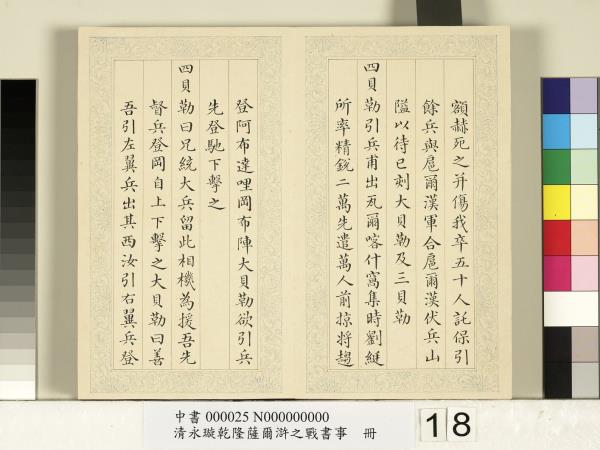 額赫死之并傷我卒五十人託保引
餘兵與扈爾漢軍合扈爾漢伏兵山
隘以待已刻大貝勒及三貝勒
四貝勒引兵甫出瓦爾喀什窩集時劉綎
所率精銳二萬先遣萬人前掠將趨
登阿布達哩岡布陣大貝勒欲引兵
先登馳下擊之
四貝勒曰兄統大兵留此相機為援吾先
督兵登岡自上下擊之大貝勒曰善
吾引左翼兵出其西汝引右翼兵登
中書 000025 N000000000
清永璇乾隆薩爾滸之戰書事 冊
18